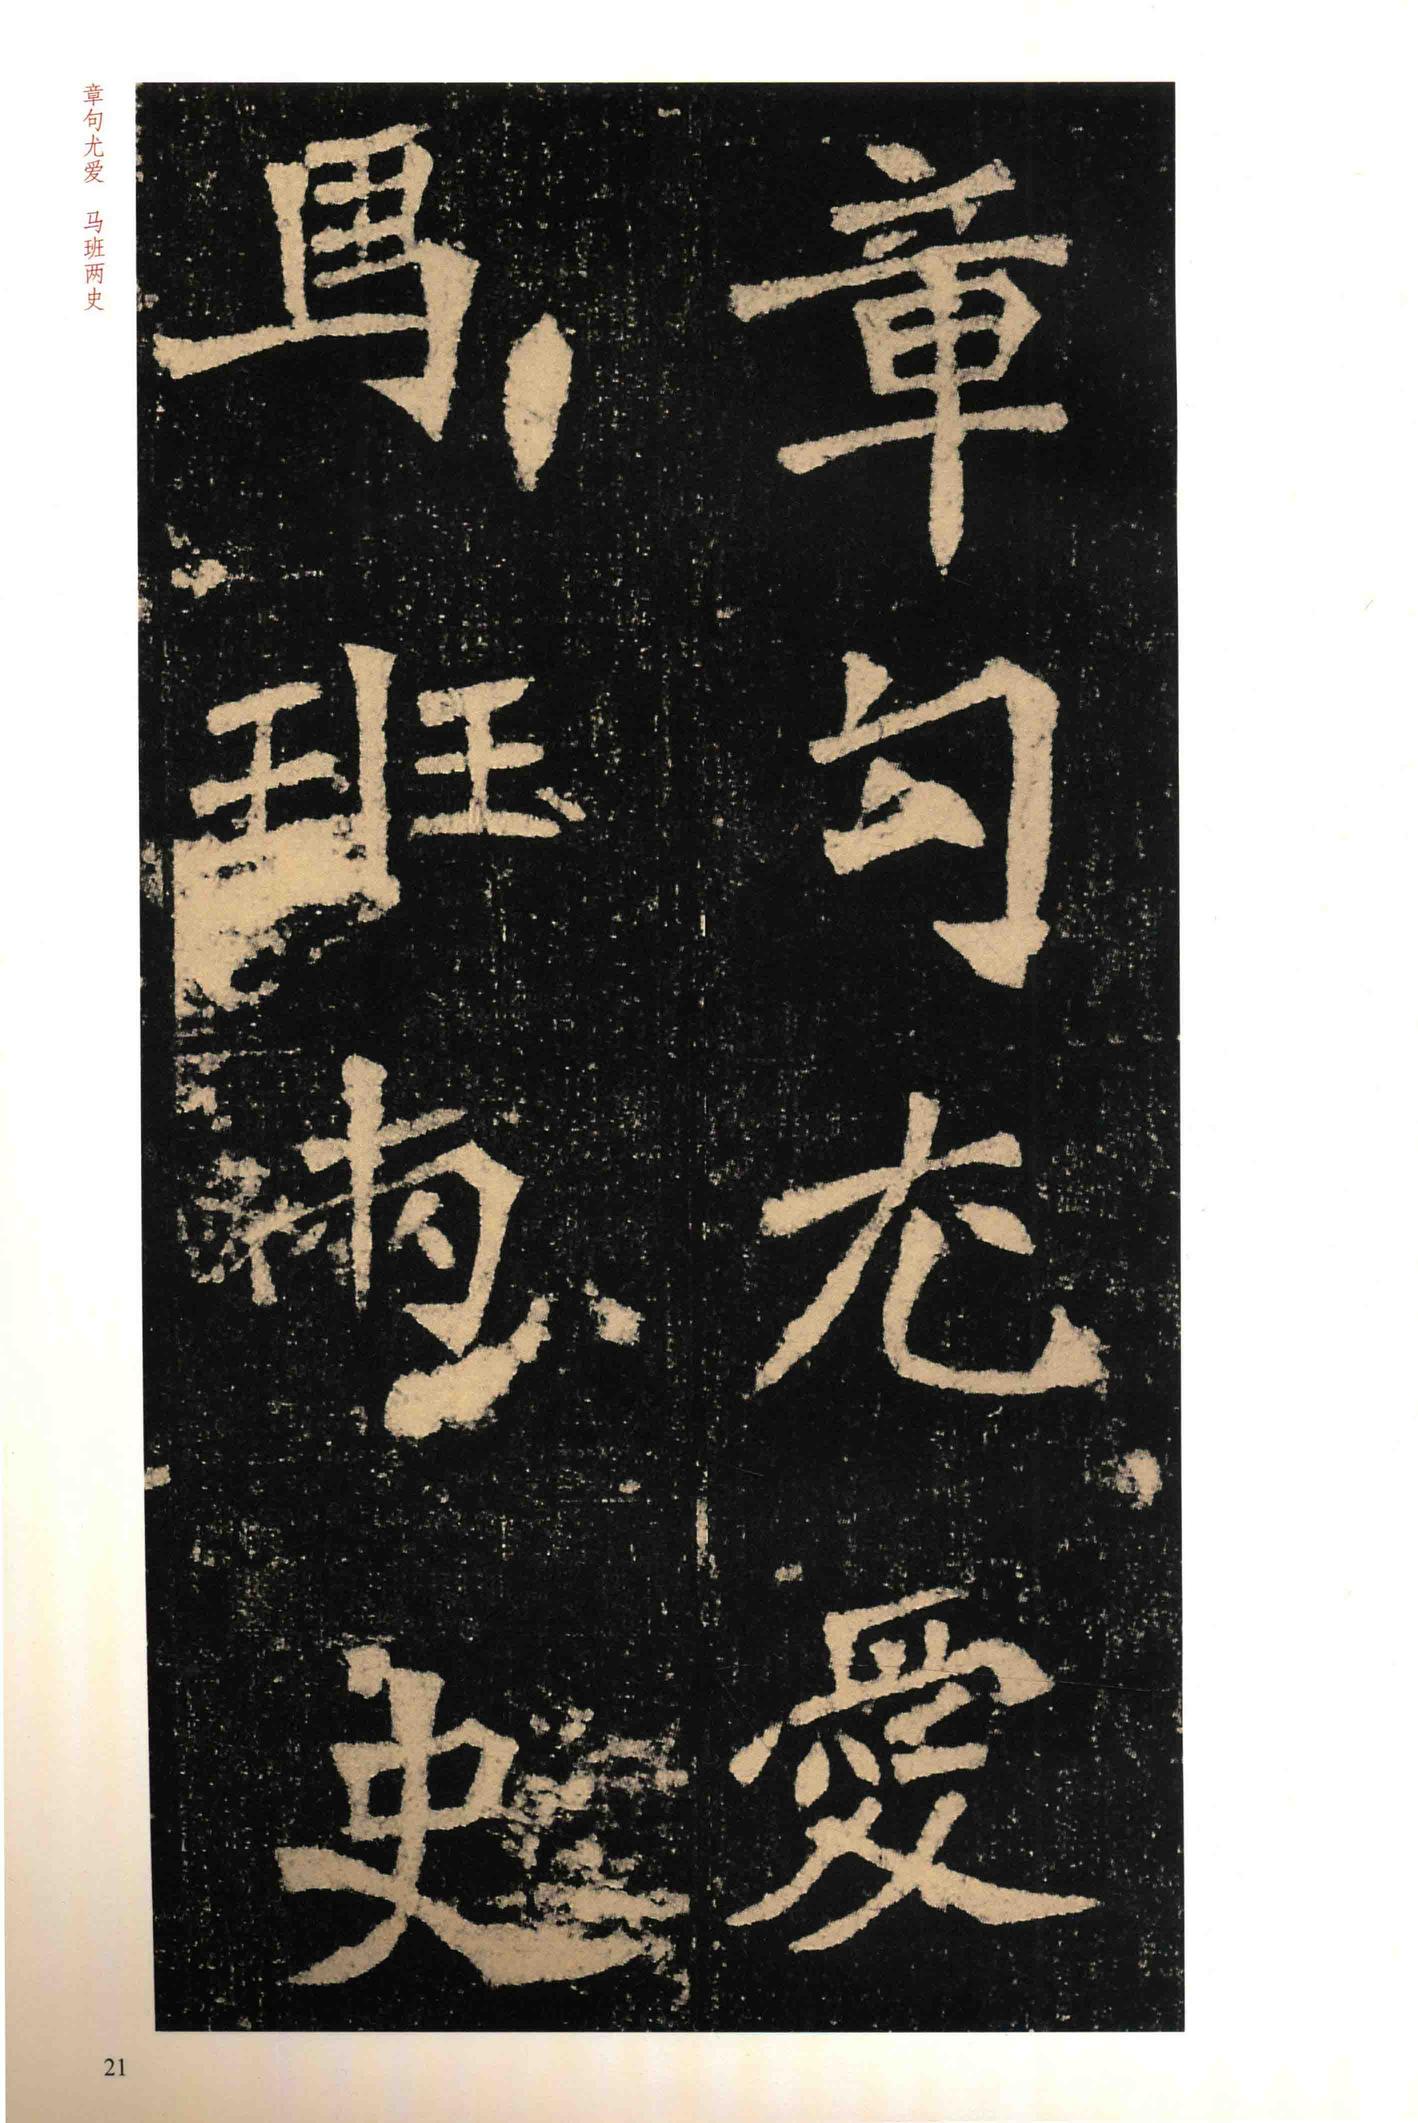 章句尤爱 马班两史
章句尤愛
馬班兩史
21